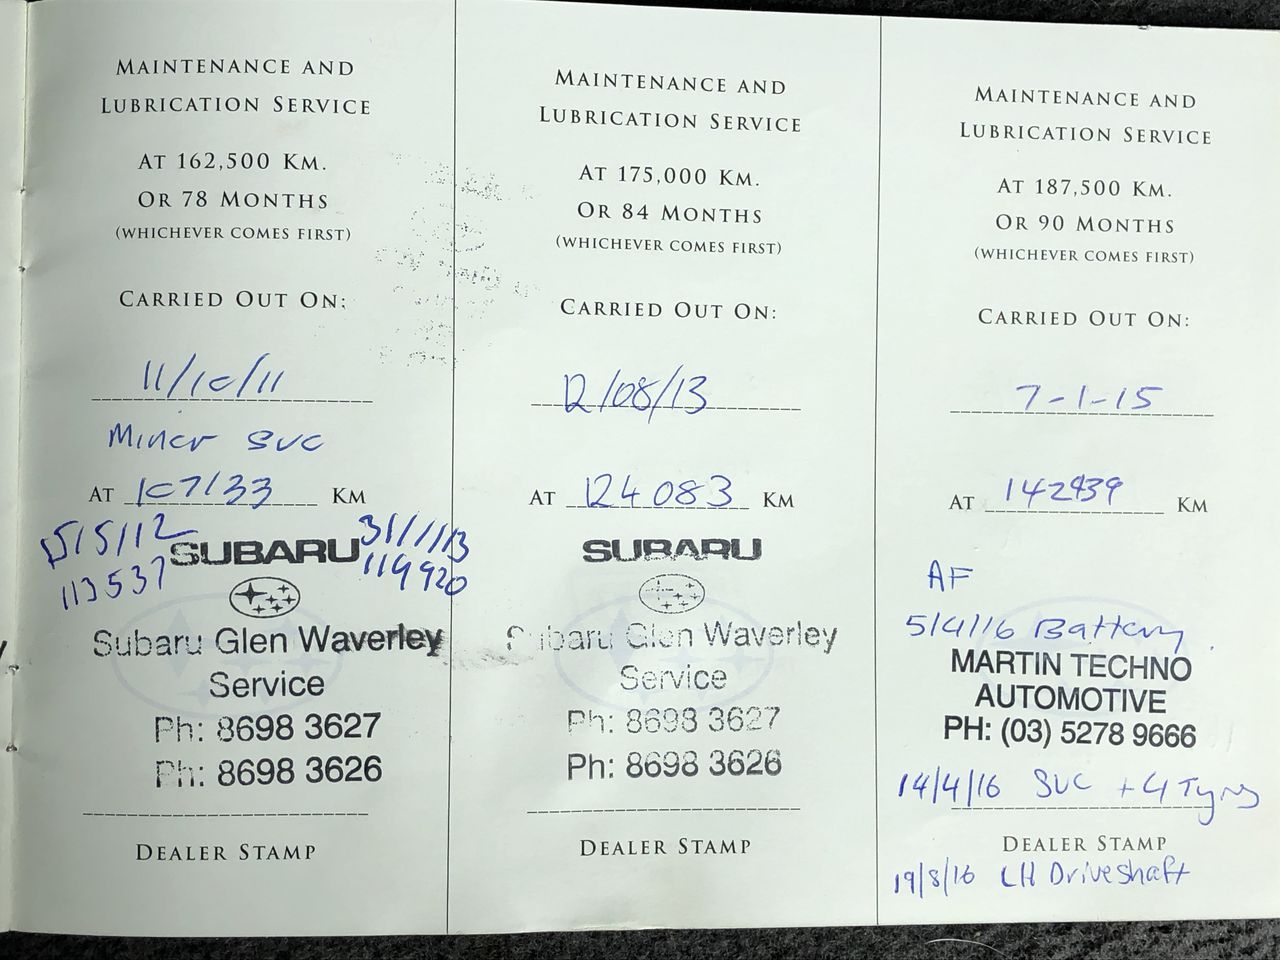 MAINTENANCE AND
LUBRICATION SERVICE
AT 162,500 KM.
OR 78 MONTHS
(WHICHEVER COMES FIRST)
CARRIED OUT ON:
11/10/11
Minor SVC
AT 107133 KM
15/5/12
113537
31/1/13
119920
SUBARU
Subaru Glen Waverley
Service
Ph: 8698 3627
Ph: 8698 3626
DEALER STAMP
MAINTENANCE AND
LUBRICATION SERVICE
AT 175,000 KM.
OR 84 MONTHS
(WHICHEVER COMES FIRST)
CARRIED OUT ON:
12/08/13
AT 124083 KM
SUBARU
Subaru Glen Waverley
Service
Ph: 8698 3627
Ph: 8698 3626
DEALER STAMP
MAINTENANCE AND
LUBRICATION SERVICE
AT 187,500 KM.
OR 90 MONTHS
(WHICHEVER COMES FIRST)
CARRIED OUT ON:
7-1-15
AT 142939 KM
AF
5/4/16 Battery
MARTIN TECHNO
AUTOMOTIVE
PH: (03) 5278 9666
14/4/16 SVC + 4 Tyres
DEALER STAMP
19/8/16 LH Driveshaft